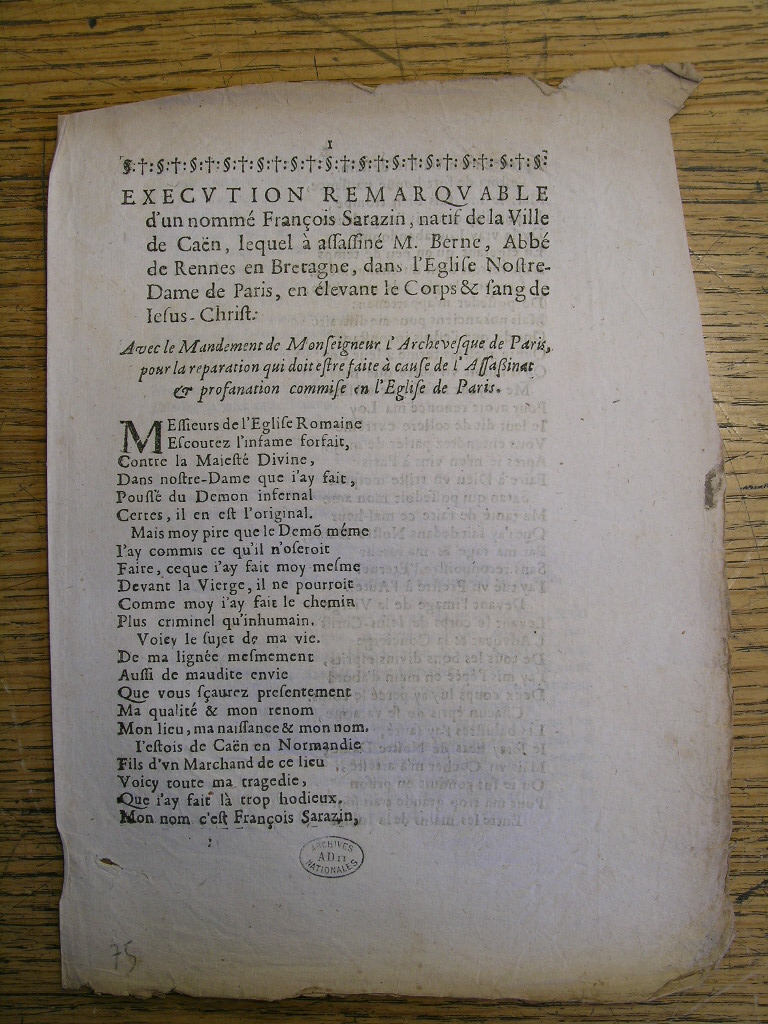 1
§:†:§:†:§:†:§:†:§:†:§:†:§:†:§:†:§:†:§:†:§:†:§:†:§:
EXECVTION REMARQVABLE
d'un nommé François Sarazin, natif de la Ville
de Caën, lequel à aſſaſſiné M. Berne, Abbé
de Rennes en Bretagne, dans l'Egliſe Noſtre-
Dame de Paris, en élevant le Corps & ſang de
Ieſus-Chriſt.
Avec le Mandement de Monſeigneur l'Archeveſque de Paris,
pour la reparation qui doit eſtre faite à cauſe de l'Aſſaßinat
& profanation commiſe en l'Egliſe de Paris.
MEſſieurs de l'Egliſe Romaine
Eſcoutez l'infame forfait,
Contre la Maieſté Divine,
Dans noſtre-Dame que i'ay fait,
Pouſſé du Demon infernal
Certes, il en eſt l'original.
Mais moy pire que le Demõ méme
I'ay commis ce qu'il n'oſeroit
Faire, ceque i'ay fait moy meſme
Devant la Vierge, il ne pourroit
Comme moy i'ay fait le chemin
Plus criminel qu'inhumain.
Voicy le ſujet de ma vie.
De ma lignée meſmement
Auſſi de maudite envie
Que vous ſçaurez preſentement
Ma qualité & mon renom
Mon lieu, ma naiſſance & mon nom.
I'eſtois de Caën en Normandie
Fils d'vn Marchand de ce lieu
Voicy toute ma tragedie,
Que i'ay fait là trop hodieux.
Mon nom c'eſt François Sarazin,
ARCHIVES
AD II
NATIONALES
75